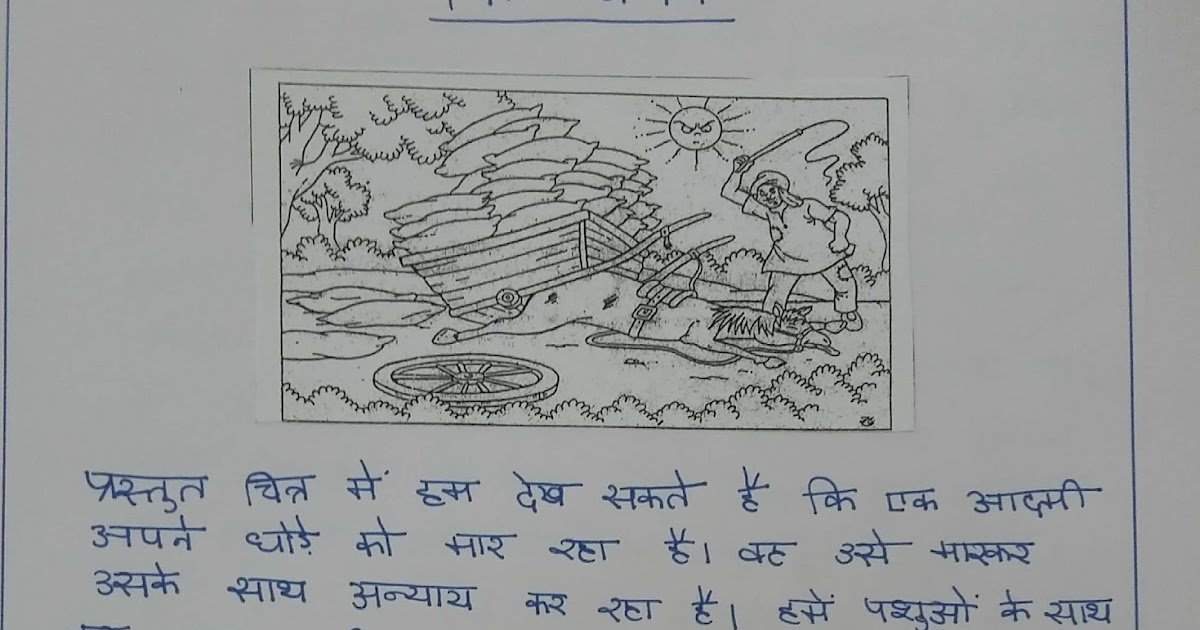 प्रस्तुत चित्र में हम देख सकते है कि एक आदमी
अपने घोड़े को मार रहा है। वह उसे मारकर
उसके साथ अन्याय कर रहा है। हमें पशुओं के साथ